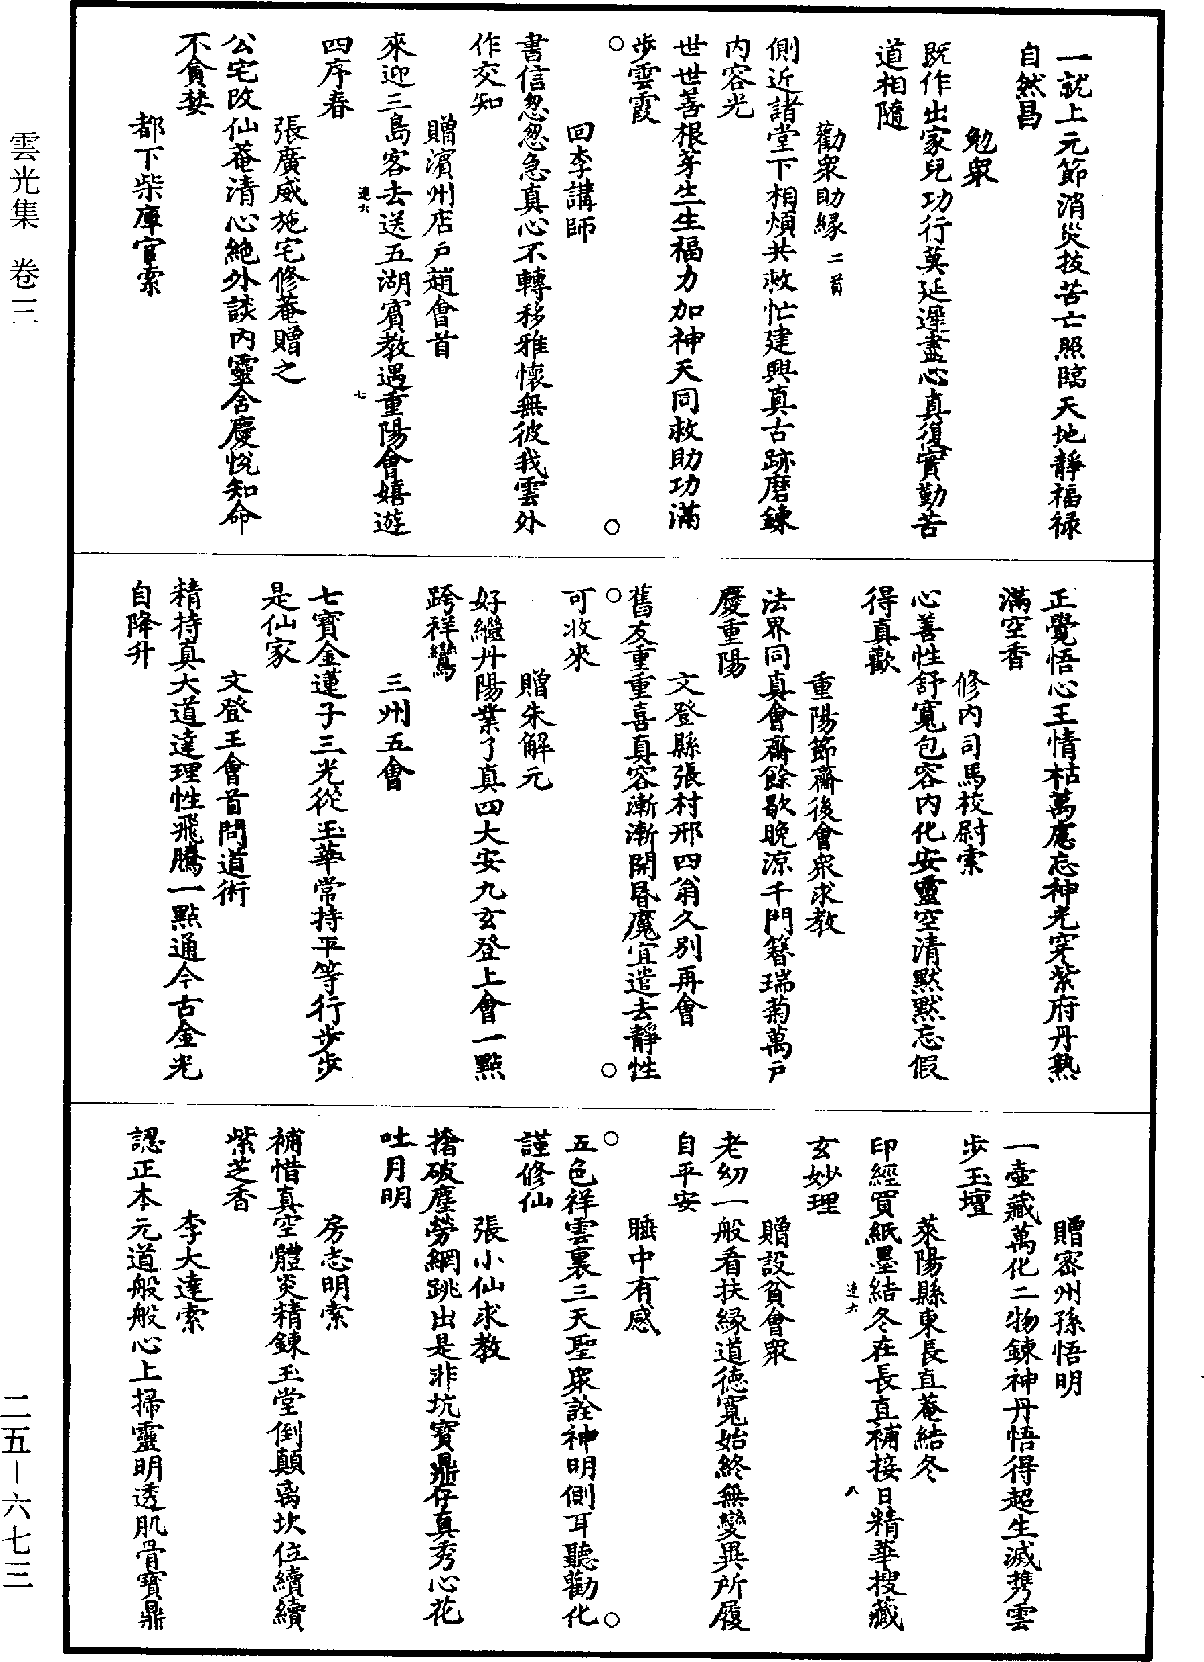 一就上元節消災拔苦亡照臨天地靜福祿
自然昌
勉衆
既作出家兒功行莫延遲盡心真復實勤苦
道相隨
勸衆助緣二首
側近諸堂下相煩共救忙建興真古跡磨鍊
內容光
世世善根芽生生福力加神天同救助功滿
步雲霞
回李講師
書信忽忽急真心不轉移雅懷無彼我雲外
作交知
贈濱州店戶趙會首
來迎三島客去送五湖賓教遇重陽會嬉遊
四序春
張廣威施宅修菴贈之
公宅改仙菴清心絕外談內靈含慶悅知命
不貪婪
都下柴庫官索
正覺悟心王情枯萬慮忘神光穿紫府丹熟
滿空香
修內司馬校尉索
心善性舒寬包容內化安靈空清默默忘假
得真歡
重陽節齋後會衆求教
法界同真會齋餘歇晚涼千門簪瑞菊萬戶
慶重陽
文登縣張村邢四翁久別再會
舊友重重喜真容漸漸開昏魔宜遣去靜性
可收來
贈朱解元
好繼丹陽業了真四大安九玄登上會一點
跨祥鸞
三州五會
七寶金蓮子三光從玉華常持平等行步步
是仙家
文登王會首問道術
精持真大道達理性飛騰一點通今古金光
自降升
贈密州孫悟明
一壺藏萬化二物鍊神丹悟得超生滅携雲
步玉壇
萊陽縣東長直菴結冬
印經買紙墨結冬在長直補接日精華搜藏
玄妙理
贈設貧會衆
老幼一般看扶緣道德寬始終無變異所履
自平安
睡中有感
五色祥雲裏三天聖衆詮神明側耳聽勸化
謹修仙
張小仙求教
搶破塵勞網跳出是非坑寶鼎存真秀心花
吐月明
房志明索
補惜真空體炎精鍊玉堂倒顛离坎位續續
紫芝香
李大達索
認正本元道般般心上掃靈明透肌骨寶鼎
雲光集 卷三
二五－六七三